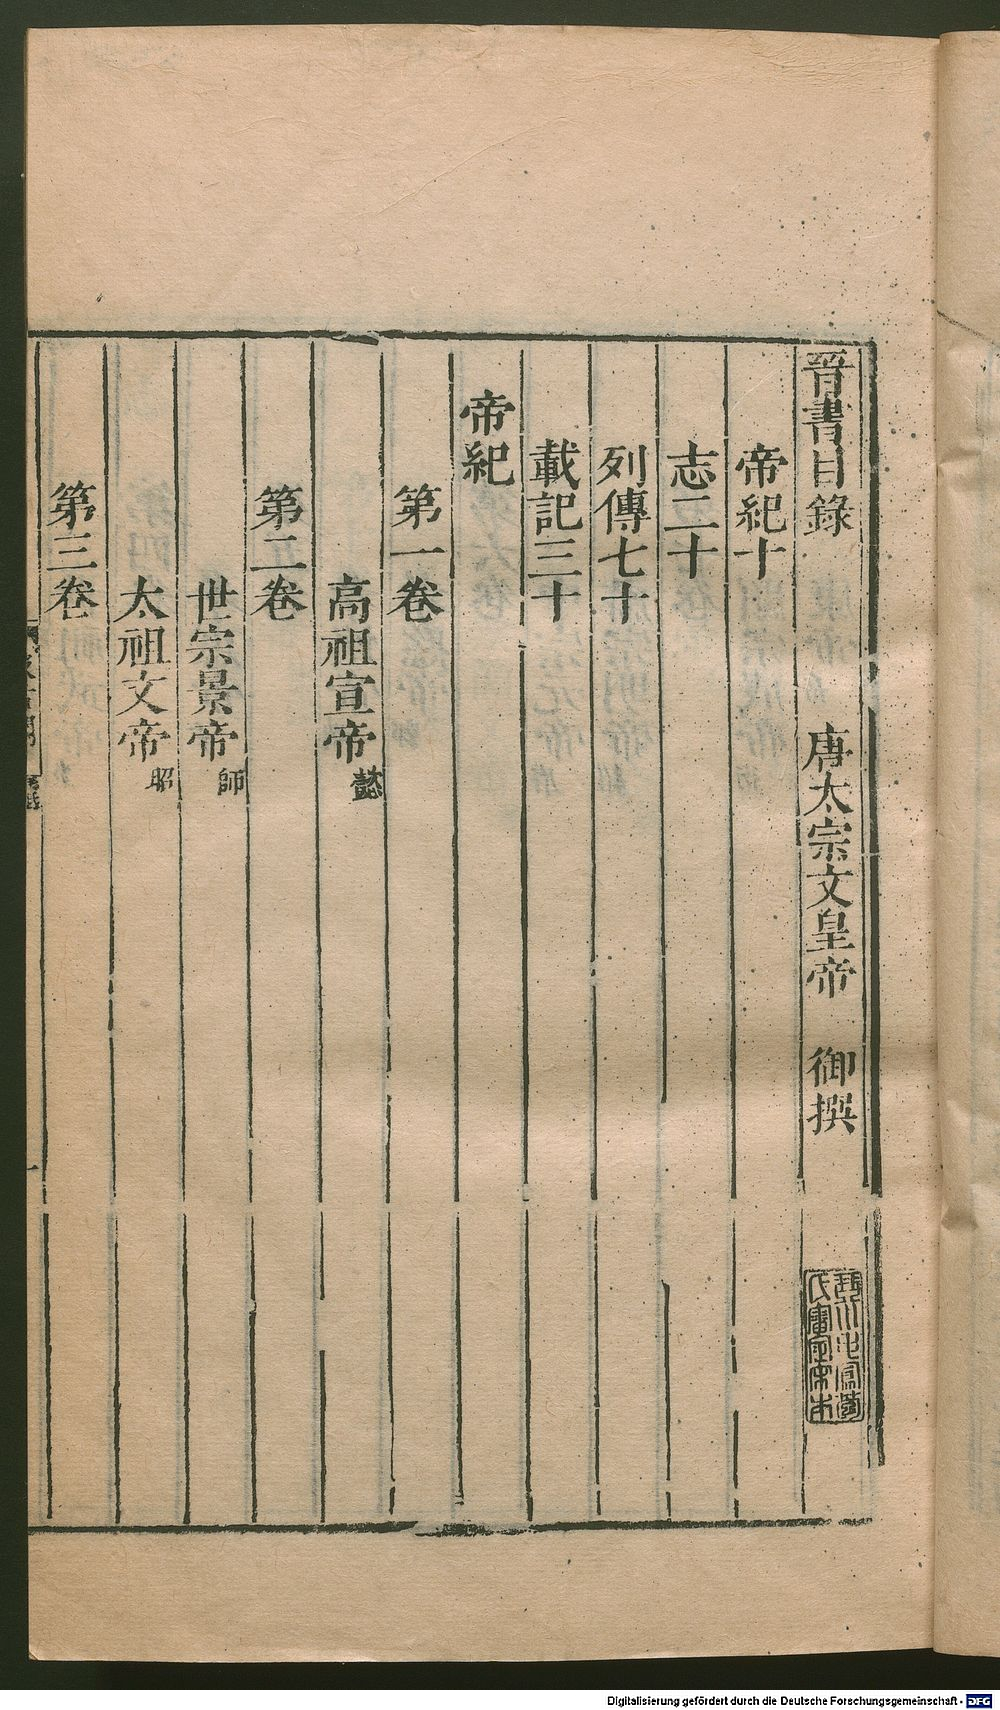 晉書目錄 唐太宗文皇帝 御撰
帝紀十
志二十
列傳七十
載記三十
帝紀
第一卷
高祖宣帝 懿
第二卷
世宗景帝 師
太祖文帝 昭
第三卷
Digitalisierung gefördert durch die Deutsche Forschungsgemeinschaft - DFG